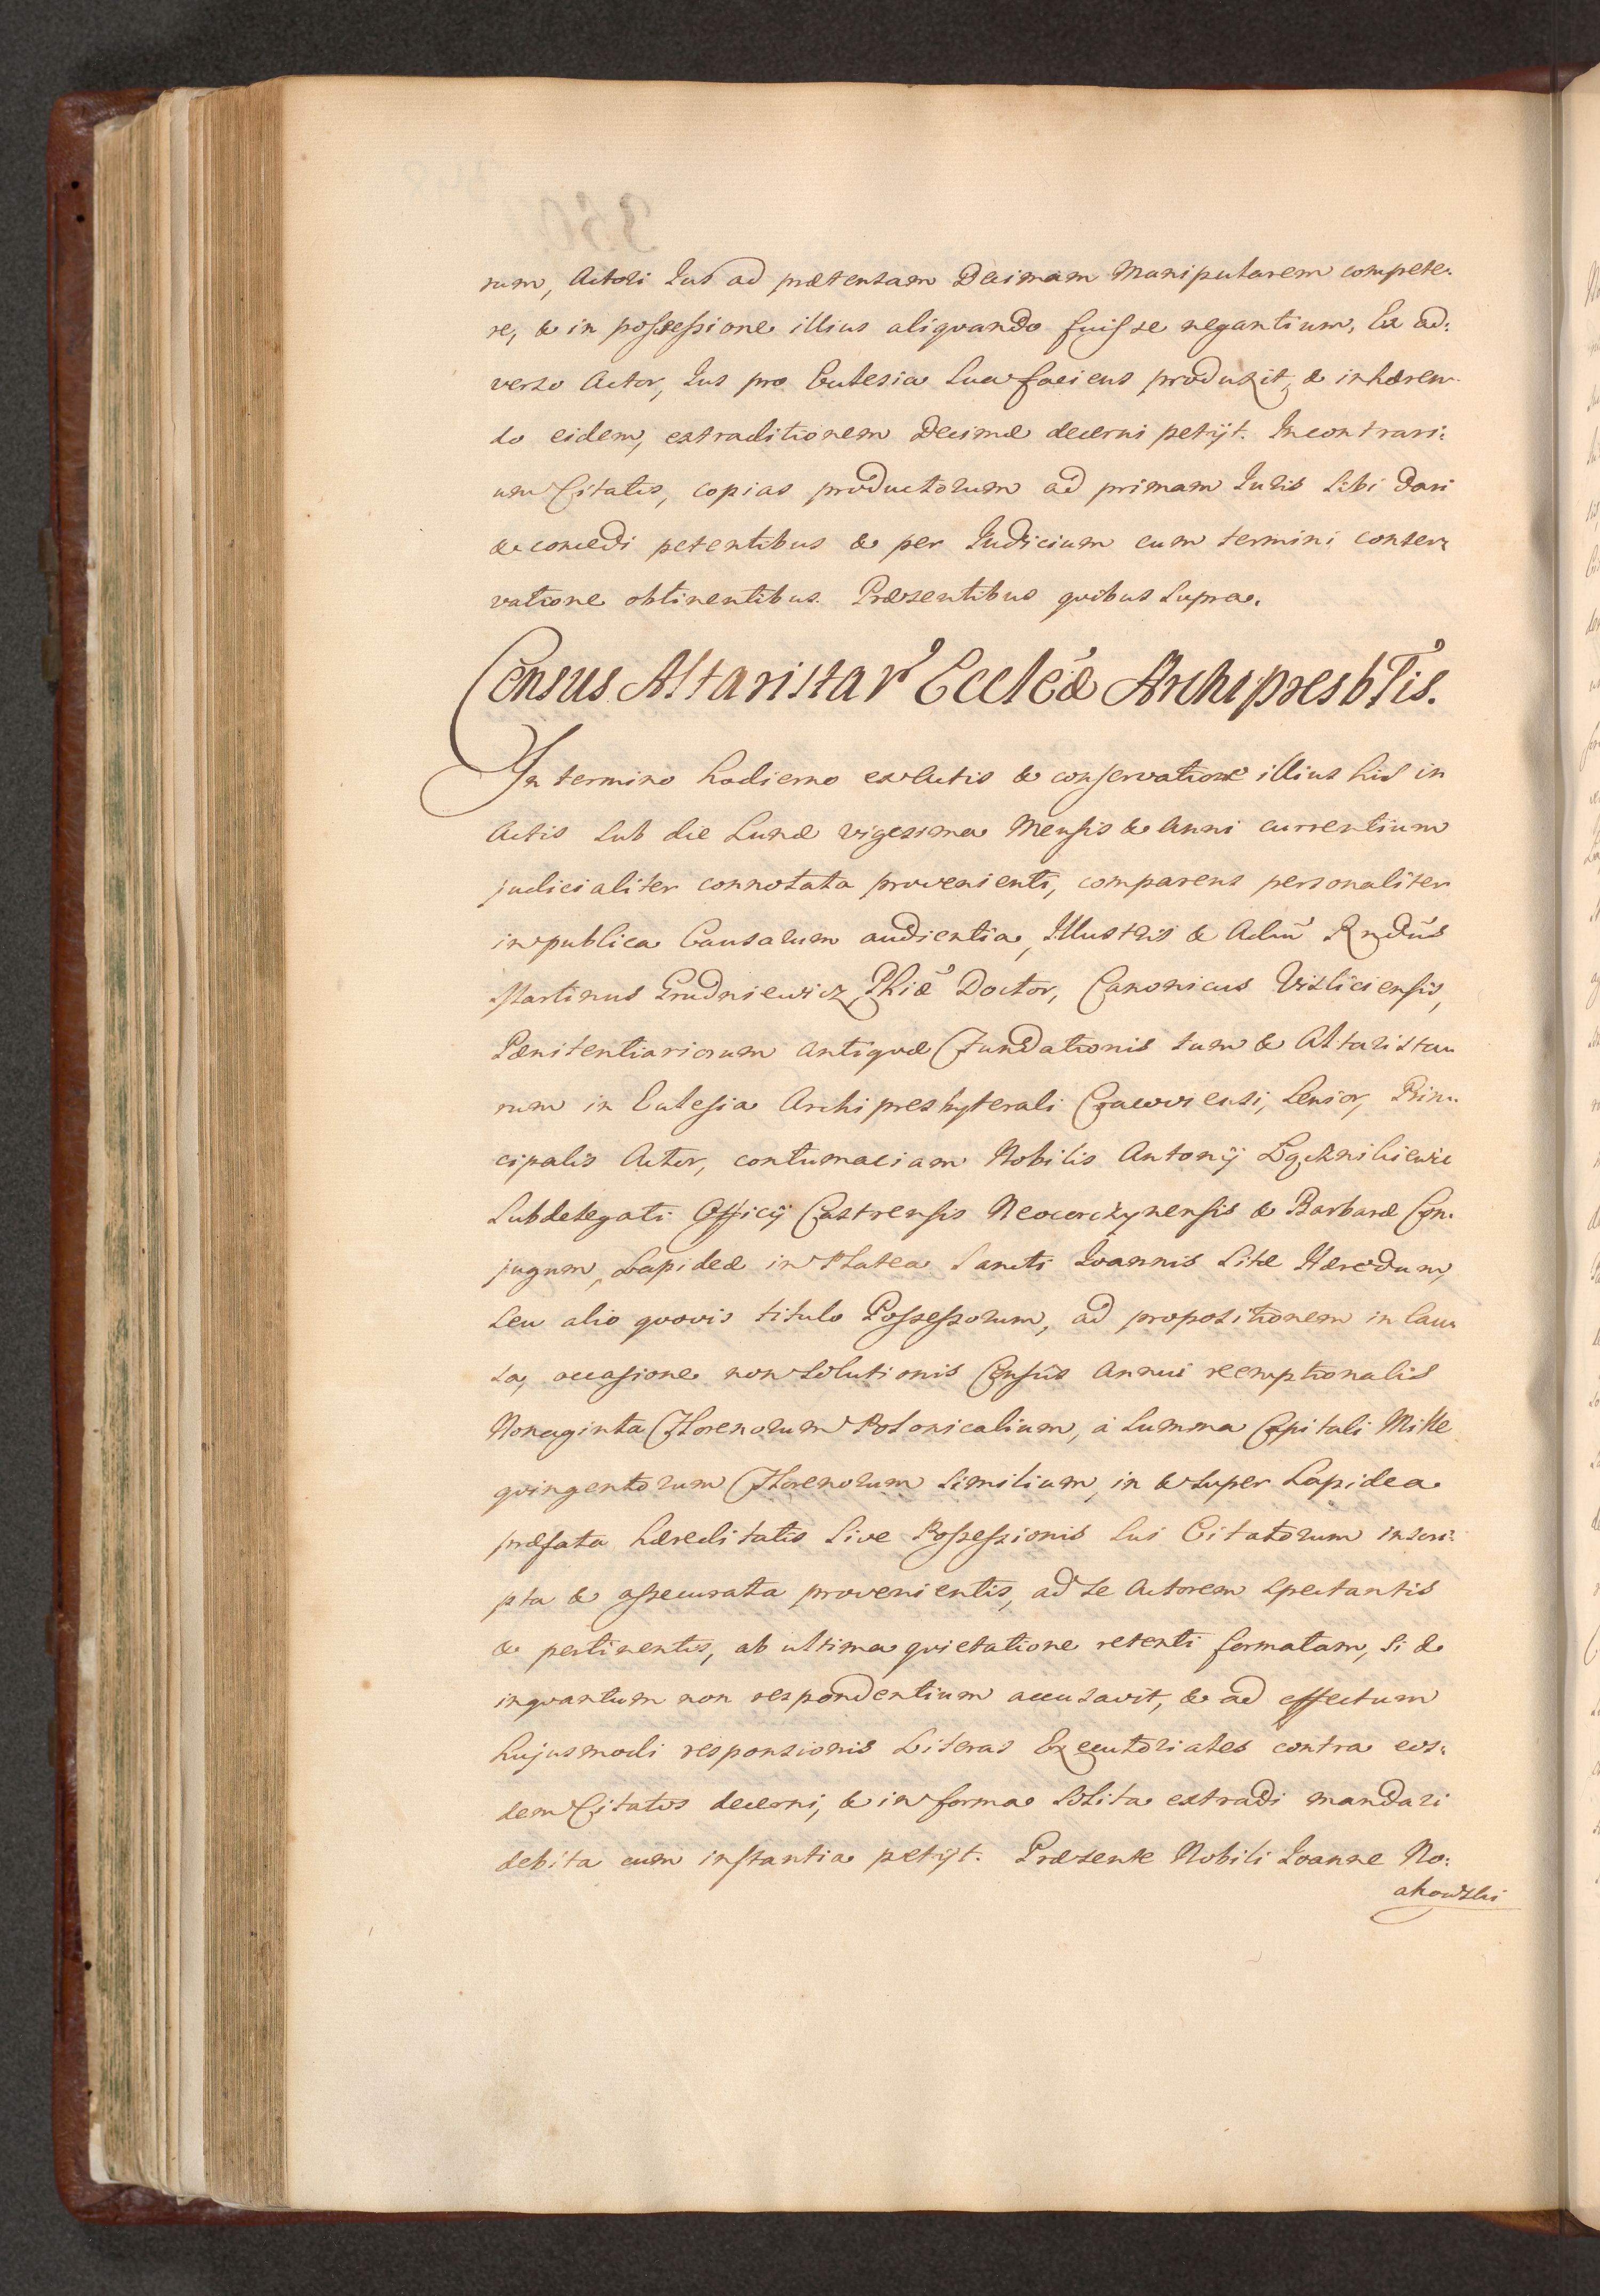 rum, Actori Jus ad prætensam Decimam Manipularem compete:
re, & in possessione illius aliquando fuisse negantium, Ex ad:
verso Actor, Jus pro Ecclesia Sua faciens produxit, & inhæren
do eidem, extraditionem Decimæ decerni petijt. In contrari:
um Citatis, copias productorum ad primam Juris Sibi dari
& concedi petentibus & per Judicium cum termini conser:
vatione obtinentibus. Præsentibus quibus Supra.
Census Altaristar' Eccleæ Archipresbtis.
In termino hodierno ex Actis & conservatione illius his in
Actis Sub die Lunæ vigesima Mensis & Anni currentium
judicialiter connotata provenienti, comparens personaliter
in publica Causarum audientia, Illustris & Adm̃ Rndũs
Martinus Grudniewicz Phiæ Doctor, Canonicus Visliciensis,
Pænitentiariorum antiquæ Fundationis tum & Altarista
rum in Ecclesia Archipresbyterali Cracoviensi, Senior, Prin
cipalis Actor, contumaciam Nobilis Antonij
Subdelegati Officij Castrensis Neocorczynensis & Barbaræ Con
jugum, Lapideæ in Platea Sancti Joannis Sitæ Hæredum,
Seu alio quovis titulo Possessorum, ad propositionem in Cau
sa, occasione non Solutionis Censûs Annui reemptionalis
Nonaginta Florenorum Polonicalium, à Summa Capitali Mille
quingentorum Florenorum Similium, in & Super Lapidea
præfata hæreditatis Sive Possessionis Sui Citatorum inscri:
pta & assecurata provenientis, ad Se Actorem Spectantis
& pertinentis, ab ultima quietatione retenti formatam, Si &
inquantum non respondentium accusavit, & ad effectum
hujusmodi responsionis Literas Executoriales contra eos:
dem Citatos decerni, & in forma Solita extradi mandari
debita cum instantia petijt. Præsente Nobili Joanne No:
akowski